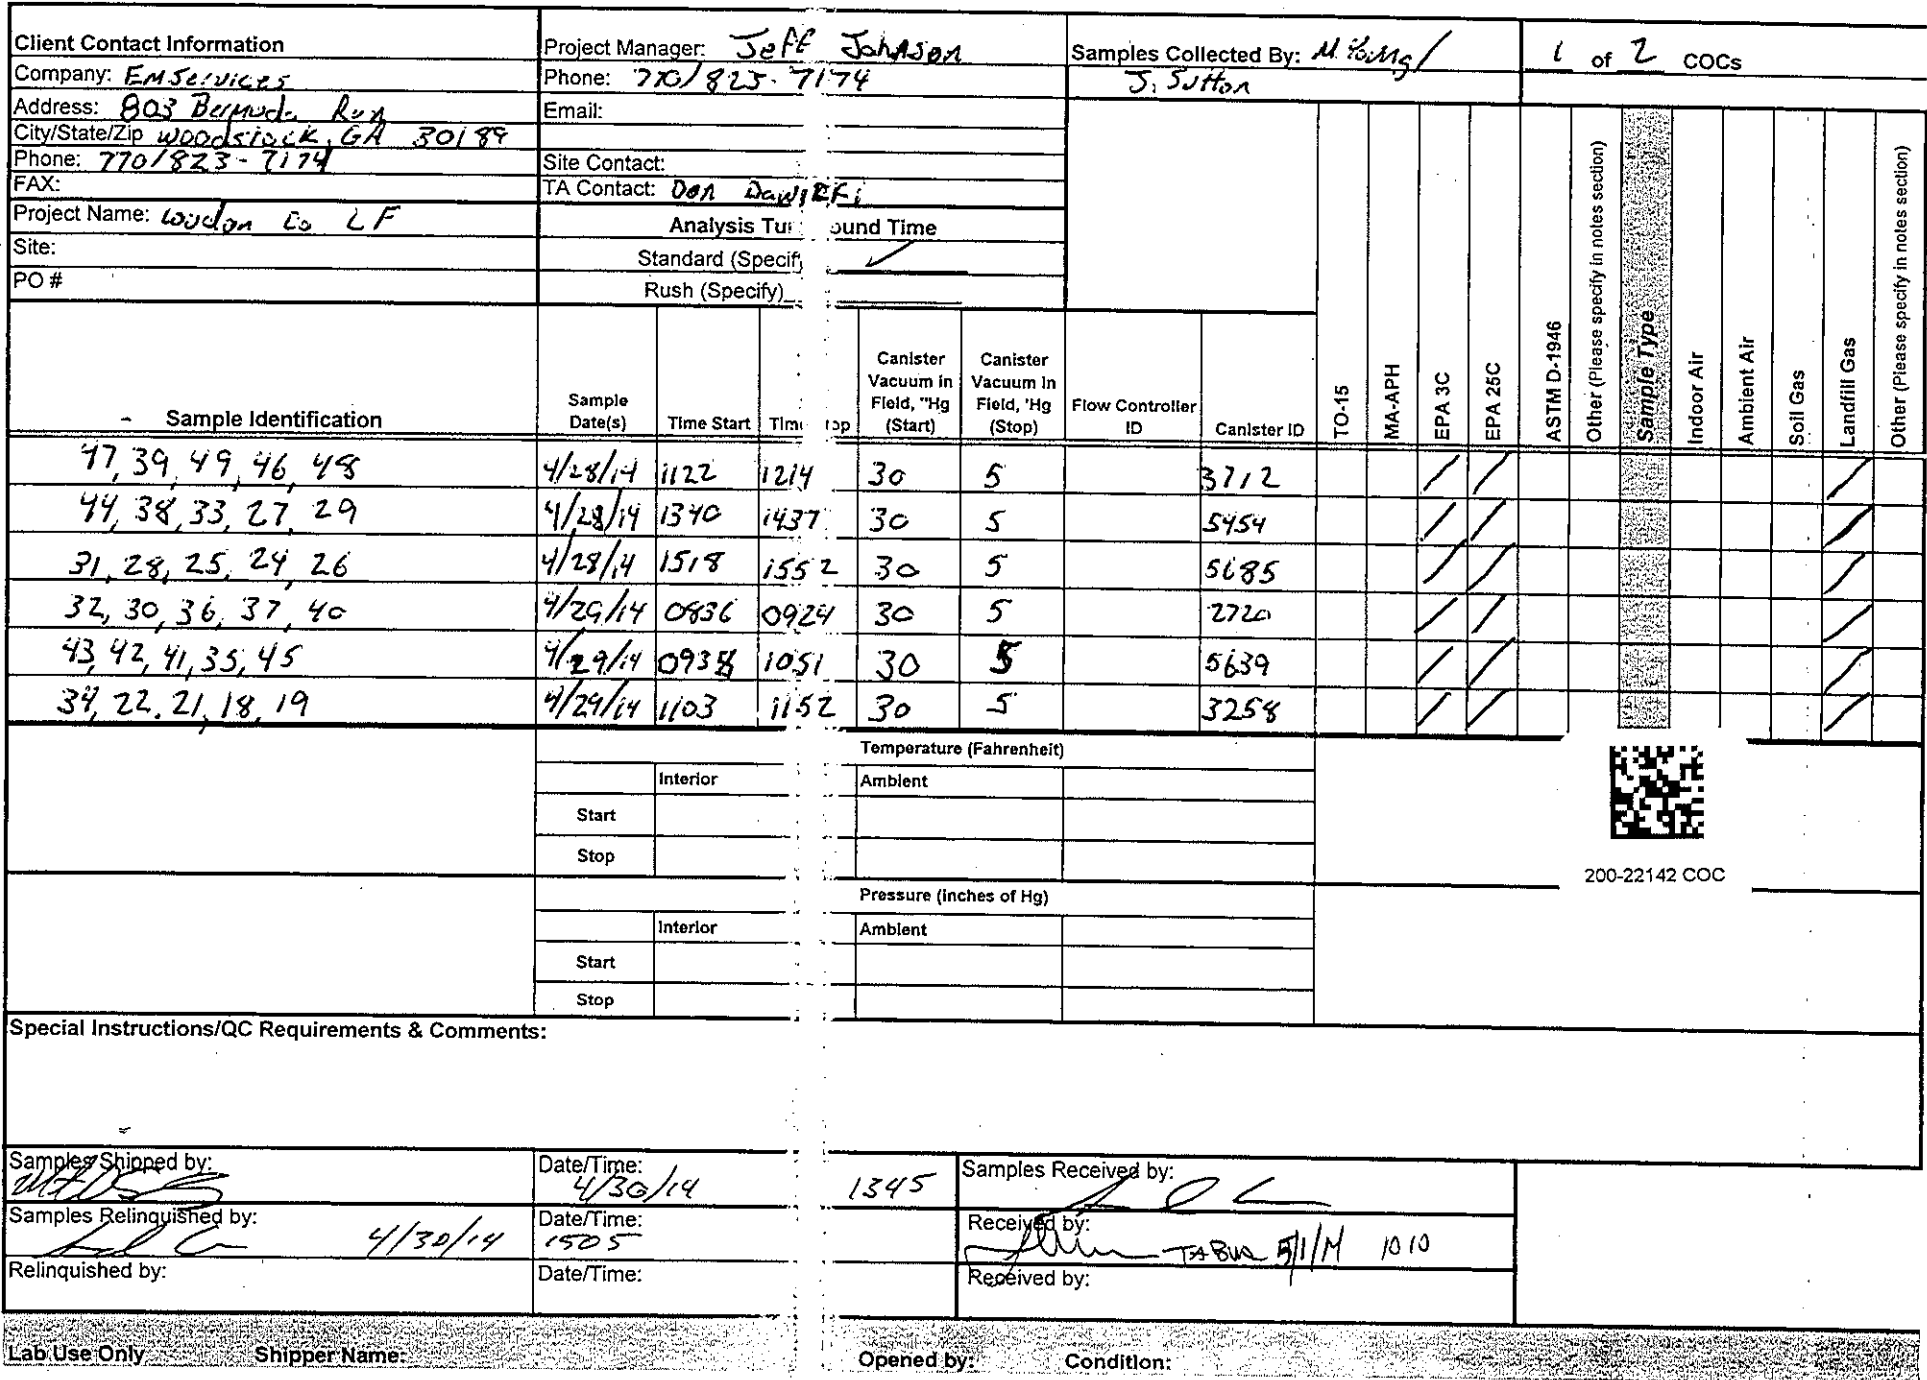 Client Contact Information
Company: EM Services
Address: 803 Bermuda Run
City/State/Zip Woodstock, GA 30189
Phone: 770/823-7174
FAX:
Project Name: Loudon Co LF
Site:
PO #
Project Manager: Jeff Johnson
Phone: 770/823-7174
Email:
Site Contact:
TA Contact: Don
Analysis Tur ound Time
Standard (Specify
Rush (Specify)
Samples Collected By: M. Young/
J. Sutton
1 of 2 COCs
Sample Identification
Sample Date(s)
Time Start
Tim op
Canister Vacuum in Field, "Hg (Start)
Canister Vacuum in Field, 'Hg (Stop)
Flow Controller ID
Canister ID
TO-15
MA-APH
EPA 3C
EPA 25C
ASTM D-1946
Other (Please specify in notes section)
Sample Type
Indoor Air
Ambient Air
Soil Gas
Landfill Gas
Other (Please specify in notes section)
47, 39, 49, 46, 48 4/28/14 1122 1214 30 5 3712 / / /
44, 38, 33, 27, 29 4/28/14 1340 1437 30 5 5454 / / /
31, 28, 25, 24, 26 4/28/14 1518 1552 30 5 5685 / / /
32, 30, 36, 37, 40 4/29/14 0836 0924 30 5 2720 / / /
43, 42, 41, 35, 45 4/29/14 1051 30 5 5639 / / /
34, 22, 21, 18, 19 4/29/14 1103 1152 30 5 3258 / / /
Temperature (Fahrenheit)
Interior Ambient
Start
Stop
200-22142 COC
Pressure (inches of Hg)
Interior Ambient
Start
Stop
Special Instructions/QC Requirements & Comments:
Samples Shipped by:
Date/Time: 4/30/14 1345
Samples Received by:
Samples Relinquished by: 4/30/14
Date/Time: 1505
Received by: TA BUR 5/1/14 1010
Relinquished by:
Date/Time:
Received by:
Lab Use Only Shipper Name: Opened by: Condition: